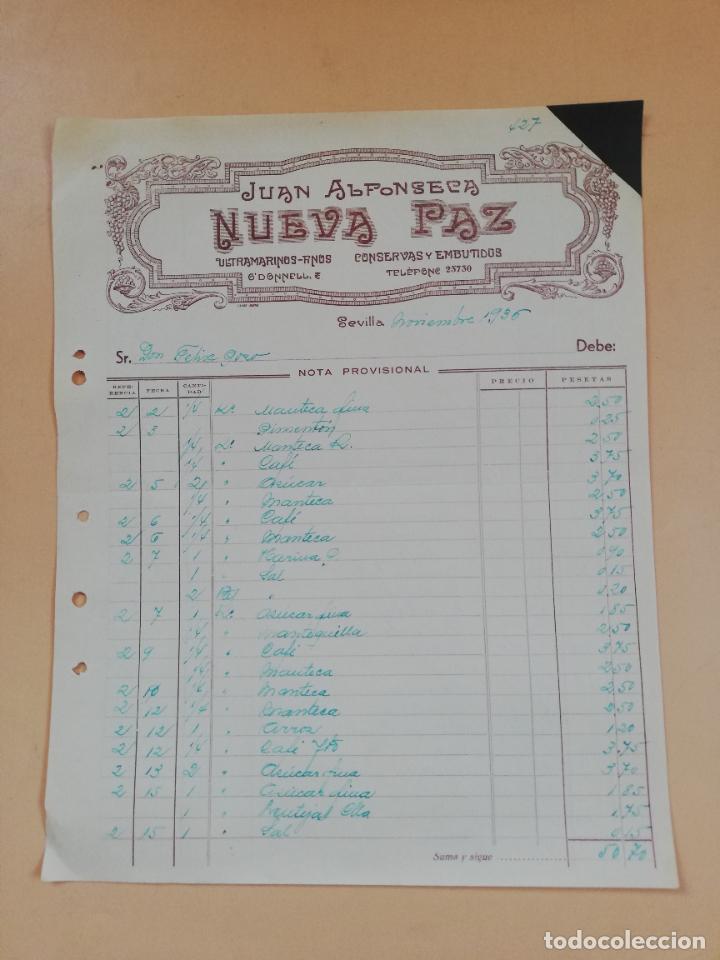 427
JUAN ALFONSECA
NUEVA PAZ
ULTRAMARINOS-FINOS CONSERVAS Y EMBUTIDOS
O'DONNELL, 2 TELÉFONO 23730
Sevilla Noviembre 1936
Sr. Don Felix Debe:
NOTA PROVISIONAL
REFERENCIA FECHA CANTIDAD PRECIO PESETAS
2/ 2/ 1/4 Ko Manteca fina 2,50
2/ 3 Pimentón 0,25
1/4 Ko Manteca 2,50
1/4 " Café 3,75
2/ 5 2 " Azúcar 3,70
1/4 " Manteca 2,50
2/ 6 1/4 " Café 3,75
2/ 6 1/4 " Manteca 2,50
2 7 1 " Harina 0,90
1 " Sal 0,15
2 " 0,20
2/ 7 1 Ko Azúcar fina 1,85
1/4 " Mantequilla 2,50
2/ 9 1/4 " Café 3,75
1/4 " Manteca 2,50
2/ 10 1/4 " Manteca 2,50
2/ 12 1/4 " Manteca 2,50
2/ 12/ 1 " Arroz 1,20
2/ 12/ 1/4 " Café 3,75
2 13 2 " Azúcar fina 3,70
2 15 1 " Azúcar fina 1,85
1 " 1,75
2 15 1 " Sal 0,15
Suma y sigue 50,70
todocoleccion
todocoleccion.net